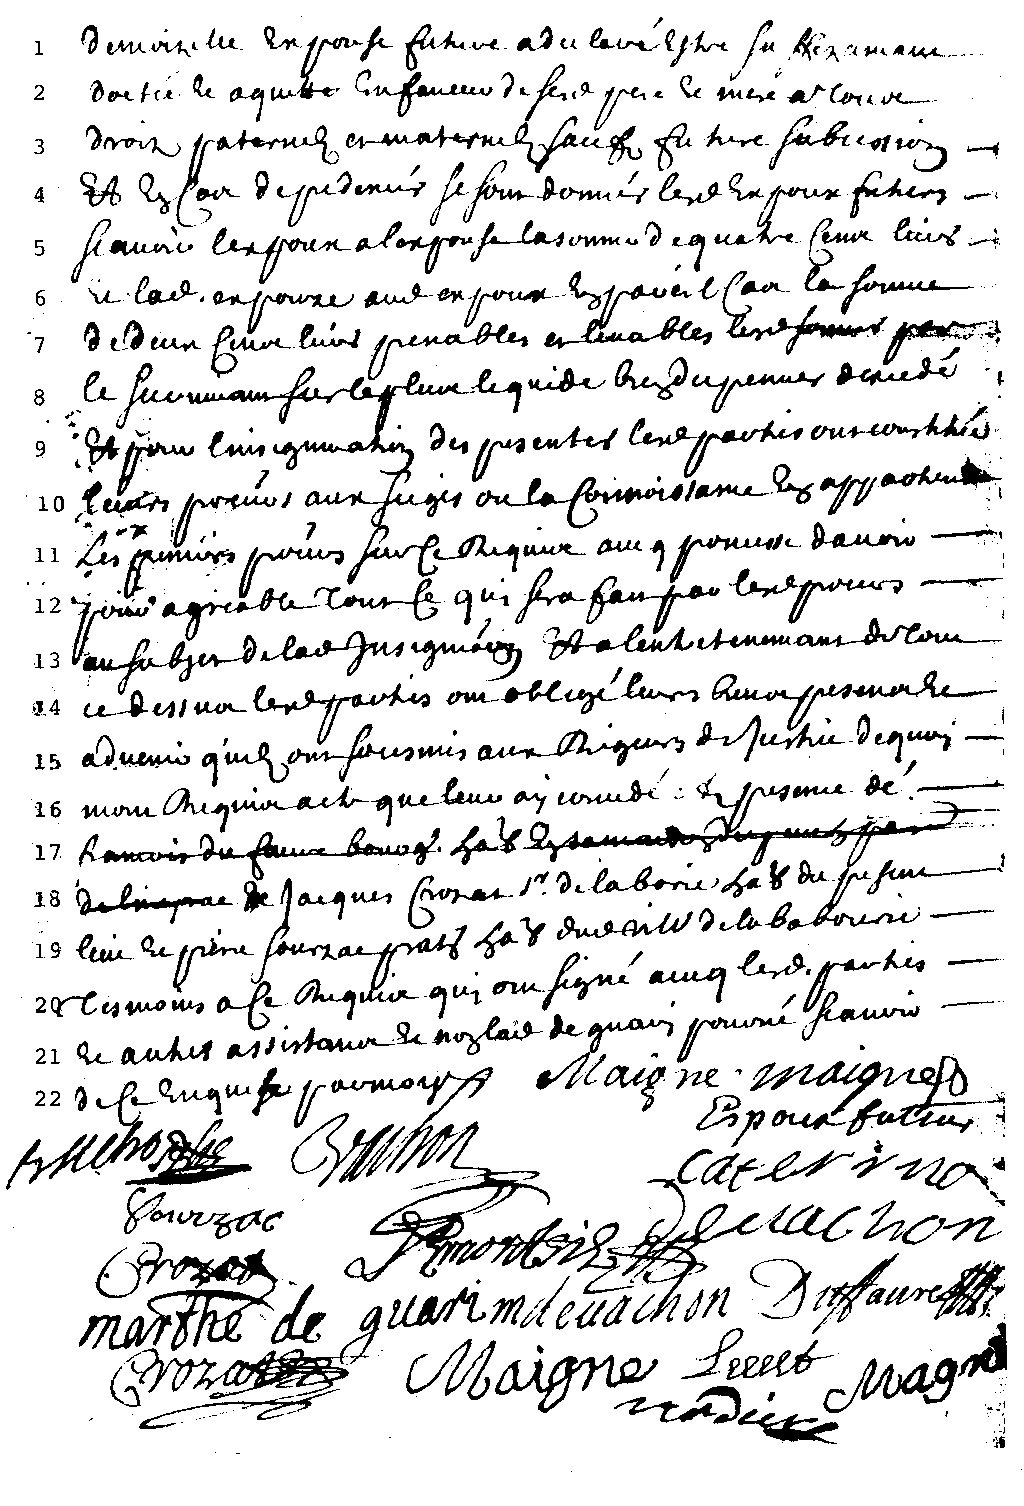 1 demoizelle Espouse future a declaré Estre
2 dottée Et aquitte En faveur de sesd pere Et mere de tous
3 droitz paternelz et maternelz sauf future subcession
4 Et En Cas de predeces se sont donnés lesd Espoux futurs
5 scavoir lespoux a lespouse la somme de quatre Cens livres
6 Et lad. espouze aud espoux En pareil Cas la somme
7 de deux Cens livres paiables et levables lesd sommes par
8 le survivant sur le plus liquide bien du premier decedé
9 Et pour linsignuation des presentes lesd parties ont constitué
10 leurs procurs aux sieges ou la Connoissance En appartiendra
11 Les premiers procurs sur Ce Requis avec promesse davoir
12 pour agreable tout Ce qui sera fait par lesd procurs
13 au subjet de lad Insignuaon Et a lentretenement de tout
14 ce dessus lesd parties ont obligé leurs biens presens Et
15 advenir quilz ont sousmis aux Rigeurs de Justice dequoy
16 mont Requis acte que leur ay concedé Es presence de
17 francois du faure bourgs. hant
18 de Jacques Crozat sr. de la borie hant du present
19 lieu Et pierre sourzac pratn hant dud de la babourie
20 tesmoins a Ce Requis qui ont signé avecq lesd. parties
21 Et autres assistans Et non lad de quaris pour ne scavoir
22 de Ce Enquise par moy Maigne maigne
Espoux futeur
Devachon Caterine
Sourzac devachon
Crozat Demontsil
marthe de quari mdevachon Duffaure
Crozat Maigne Magne